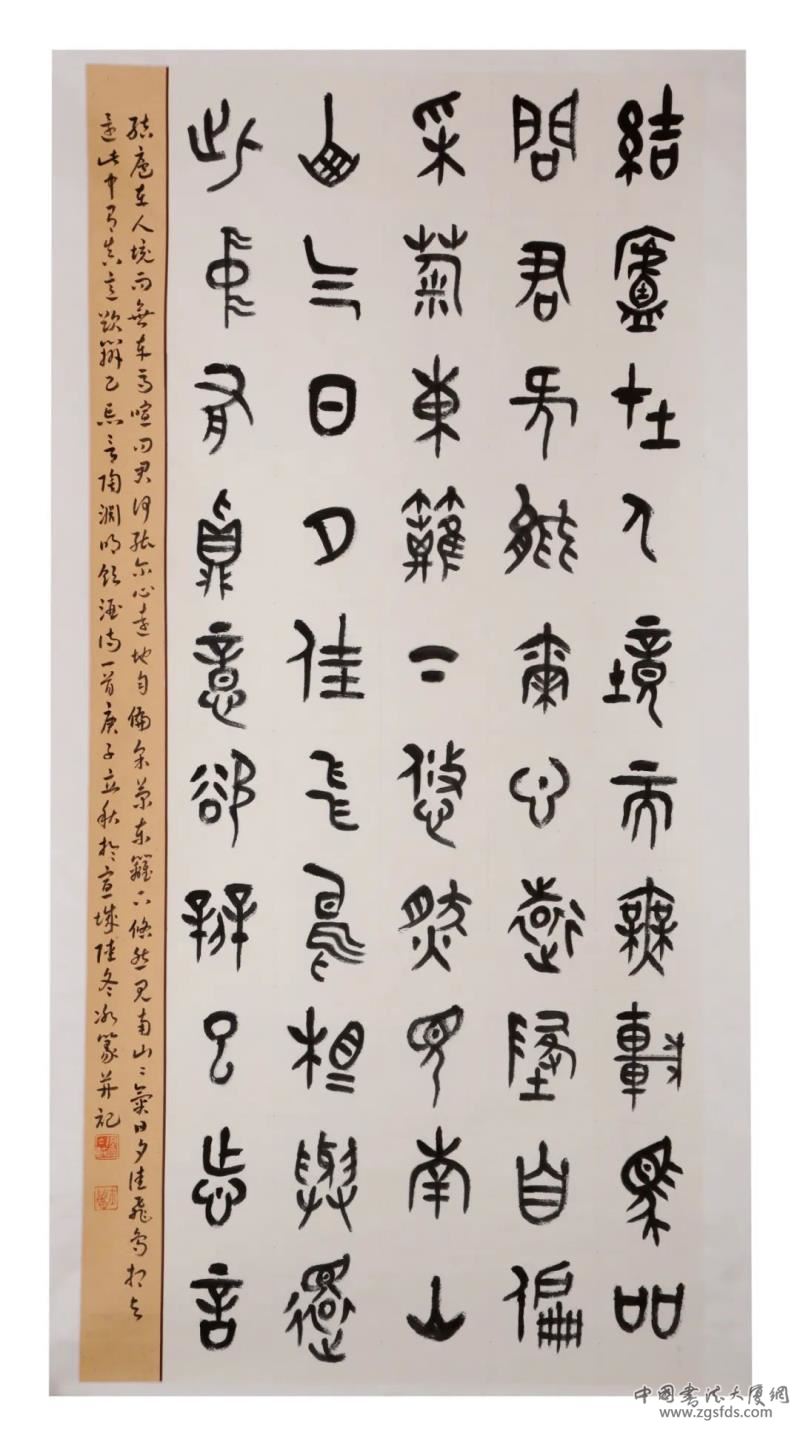 結廬在人境而無車馬吅
問君何能爾心遠地自偏
采菊東籬下悠然見南山
山气日夕佳飛鳥相與還
此中有真意欲辨已忘言
結廬在人境而無車馬喧問君何能尔心遠地自偏采菊東籬下悠然見南山〻氣日夕佳飛鳥相与
還此中有真意欲辨已忘言陶淵明飲酒詩一首庚子立秋於宣城陸冬冰篆并記
中國書法大廈網
www.zgsfds.com